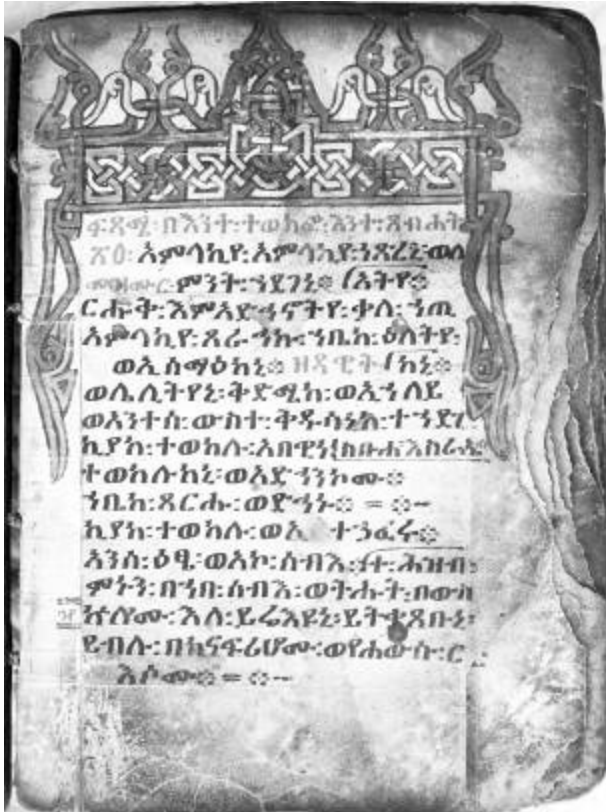 ፍጻሜ፡በእንተ፡ተወክፎ፡እንተ፡ጸብሐት
አምላኪየ፡አምላኪየ፡ነጽረኒ፡ወለ
መዝሙር፡ምንት፡ኀደገኒ፨ ኣትየ፨
ርሑቅ፡እምአድኅኖትየ፡ቃለ፡ኀጢ
አምላኪየ፡ጸራኅኩ፡ኀቤከ፡ዕለትየ፡
ወኢሰማዕከኒ፨ ዘዳዊት ከኒ፨
ወሌሊትየኒ፡ቅድሜከ፡ወኢኀለይ
ወአንተሰ፡ውስተ፡ቅዱሳኒከ፡ተኀድር
ኪያከ፡ተወከሉ፡አበዊነ፡ እስራኤ
ተወከሉከኒ፡ወአድኀንኮሙ፨
ኀቤከ፡ጸርሑ፡ወድኅኑ፨ = ፨-
ኪያከ፡ተወከሉ፡ወኢ ተኀፍሩ፨
አንሰ፡ዕፄ፡ወአኮ፡ሰብእ፡ተ፡ሕዝብ፡
ምኑን፡በኀበ፡ሰብእ፡ወትሑት፡በውስ
ኵሎሙ፡እለ፡ይሬእዩኒ፡ይትቃጸቡኒ፡
ይብሉ፡በከናፍሪሆሙ፡ወየሐውሱ፡ር
እሶሙ፨ = ፨-